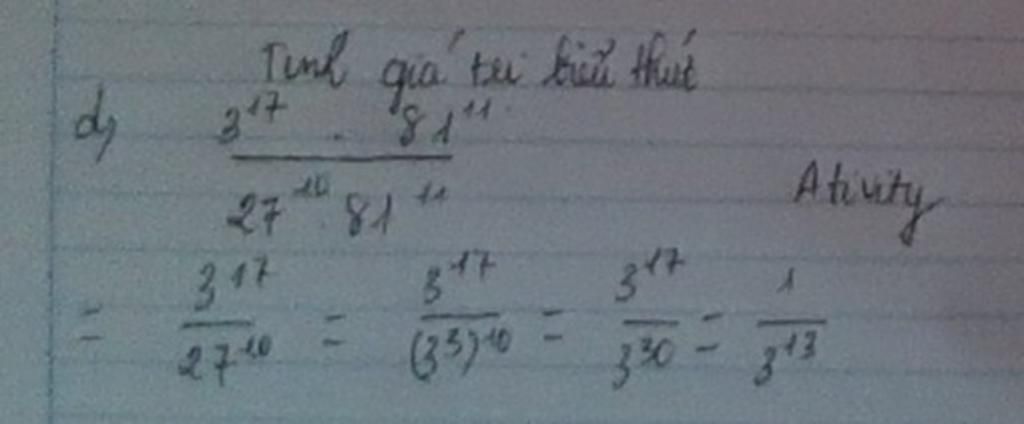 Tính giá trị biểu thức
d, 3^17 . 81^11 / 27^10 . 81^11
Ativity
= 3^17 / 27^10 = 3^17 / (3^3)^10 = 3^17 / 3^30 = 1 / 3^13